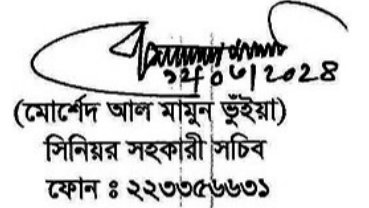 (মোর্শেদ আল মামুন ভূঁইয়া)
সিনিয়র সহকারী সচিব
ফোন ঃ ২২৩৩৫৬৬৩১